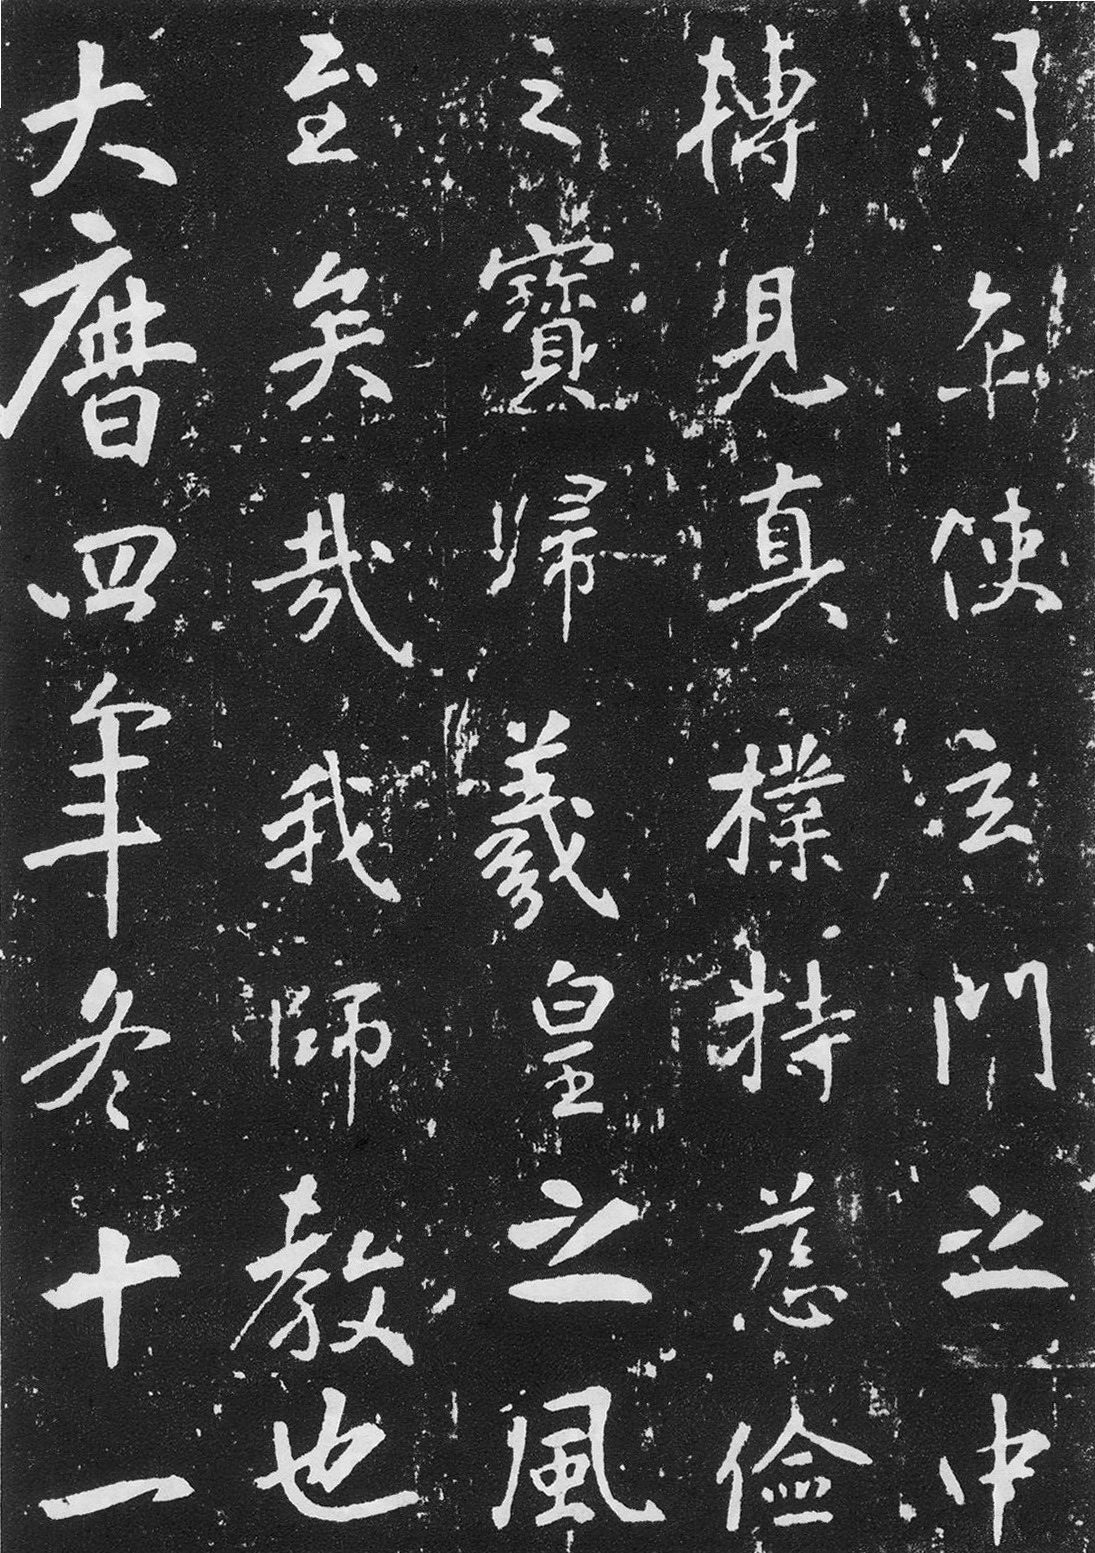 月使玄門之中
博見真樸持慈儉
之寶歸羲皇之風
至矣哉我師教也
大曆四年冬十一